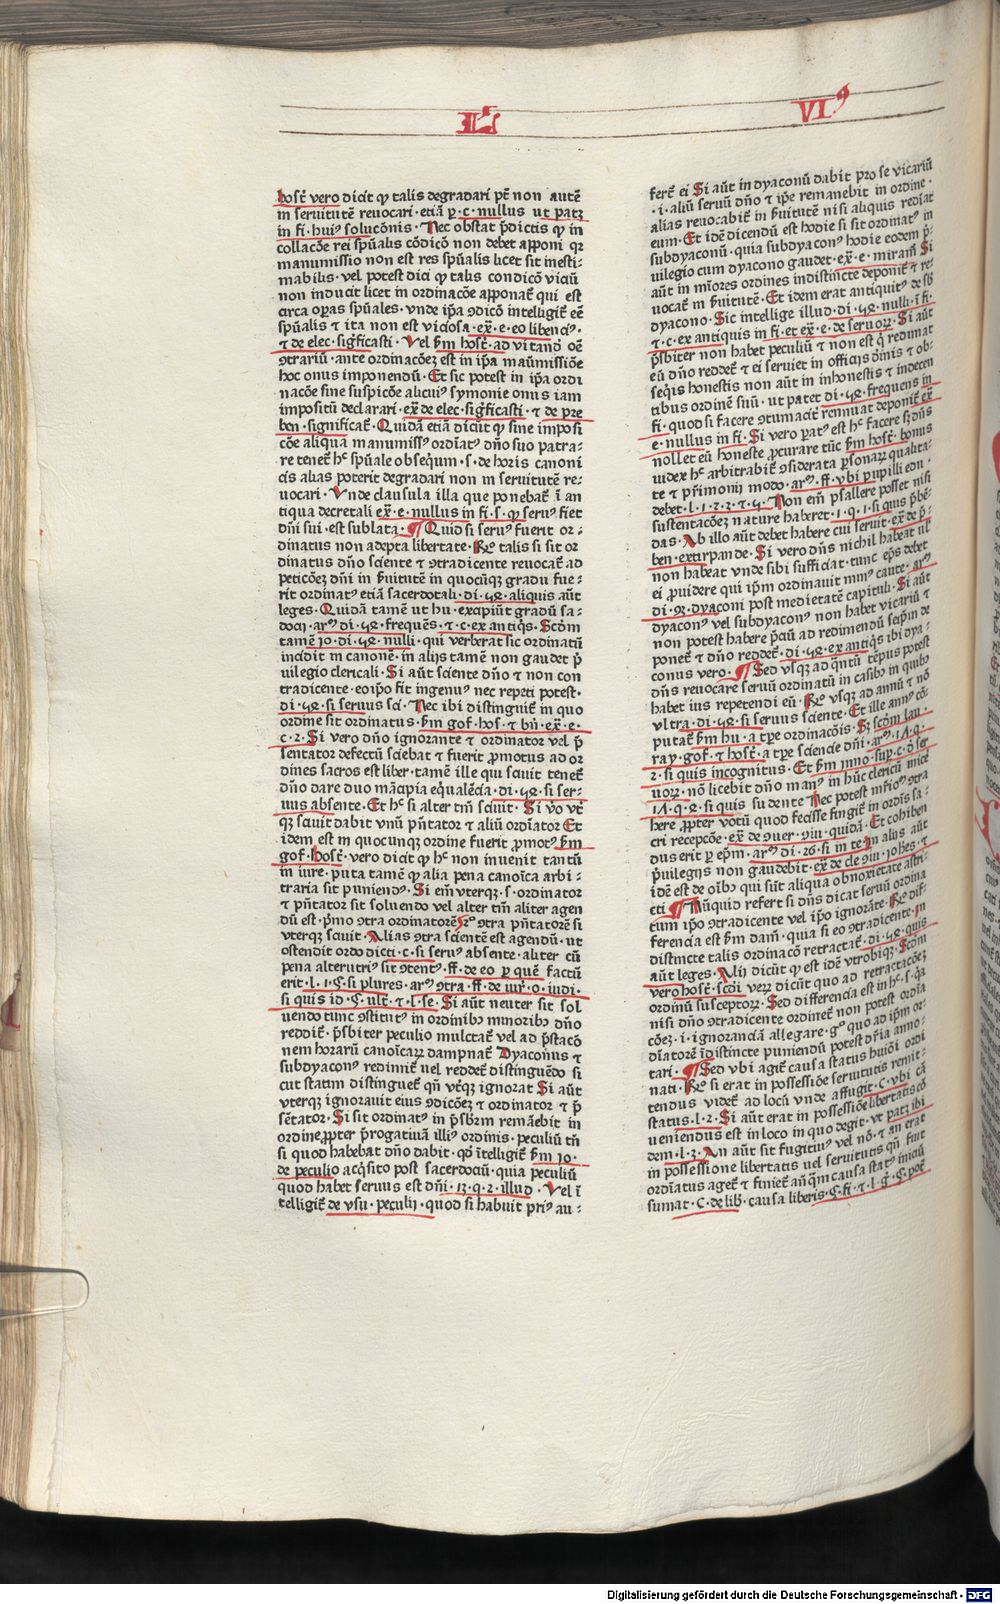 L
VIꝰ
host̄ vero dicit ꝙ talis degradari pt̄ non autē
in seruitutē reuocari · etiā p · c · nullus ut patꝫ
in fi · huiꝰ solucōnis · Nec obstat p̄dictis ꝙ in
collacōe rei spūalis cōdicō non debet apponi qꝛ
manumissio non est res spūalis licet sit inesti⸗
mabilis · vel potest dici ꝙ talis condicō viciū
non inducit licet in ordinacōe apponat̄ qui est
circa opas spūales · vnde ip̄a ꝯdicō intelligit̄ eē
spūalis ⁊ ita non est viciosa · ex̄ · e · eo libenciꝰ ·
⁊ de elec · sigficasti · Vel s̄m host̄ · ad vitand̄ oē
ꝯtrariū · ante ordinacōeꝫ est in ip̄a manūmissiōe
hoc onus imponendū · Et sic potest in ip̄a ordi
nacōe sine suspicōe alicuiꝰ symonie onus iam
impositū declarari · ex̄ de elec · sigficasti · ⁊ de pre
ben · significat̄ · Quidā etiā dicūt ꝙ sine imposi
cōe aliqua manumissꝰ ordīatꝰ dn̄o suo patra⸗
re tenet̄ hͨ spūale obseqͥum · s · de horis canoni
cis alias poterit degradari non in seruitutē re⸗
uocari · Vnde clausula illa que ponebat̄ ī an
tiqua decretali ex̄ · e · nullus in fi · s · ꝙ seruꝰ fiet
dn̄i sui · est sublata · ¶ Quid si seruꝰ fuerit or⸗
dinatus non adepta libertate · Rͦ talis si sit or
dinatus dn̄o sciente ⁊ ꝯtradicente reuocat̄ ad
peticōeꝫ dn̄i in s̄uitutē in quocūqꝫ gradu fue⸗
rit ordinatꝰ etiā sacerdotali · di · 54 · aliquis aūt
leges · Quidā tamē ut hu · excipiūt gradū sa⸗
docij · arᵐ di · 54 · frequēs · ⁊ c · ex antiqͥs · Scōm
tamē io · di · 54 · nulli · qui verberat sic ordinatū
incidit in canonē · in alijs tamē non gaudet p̄
uilegio clericali · Si aūt sciente dn̄o ⁊ non con
tradicente · eoip̄o fit ingenuꝰ nec repeti potest ·
di · 54 · si seruus sci · Nec ibi distinguit̄ in quo
ordine sit ordinatus · s̄m gof · hos · ⁊ bn̄ · ex̄ · e ·
c · 2 · Si vero dn̄o ignorante ⁊ ordinator vel p̄
sentator defectū sciebat ⁊ fuerit p̄motus ad or
dines sacros est liber · tamē ille qui sciuit tenet̄
dn̄o dare duo mācipia eqͥualēcia · di · 54 · si ser⸗
uus absente · Et hͨ si alter tm̄ sciuit · Si v̄o vtͬ
qꝫ sciuit dabit vnū pn̄tator ⁊ aliū ordīator Et
idem est in quocunqꝫ ordine fuerit p̄motꝰ s̄m
gof · host̄ · vero dicit ꝙ hͨ non inuenit tantū
in iure · puta tamē ꝙ alia pena canoīca arbi⸗
traria sit puniendꝰ · Si em̄ vterqꝫ · s · ordinator
⁊ pn̄tator sit soluendo vel alter tm̄ aliter agen
dū est · p̄mo ꝯtra ordinatorē · 2ͦ · ꝯtra pn̄tatorē si
vterqꝫ sciuit · Alias ꝯtra scientē est agendū · ut
ostendit ordo dicti · c · si seruꝰ absente · aliter cū
pena alterutriꝰ sit ꝯtentꝰ · ff · de eo p quē factū
erit · l · 1 · § · si plures · arᵐ ꝯtra · ff · de iur̄ · o · iudi ·
si quis id · § · ult̄ · ⁊ · l · se · Si aūt neuter sit sol
uendo tunc ꝯstitutꝰ in ordinibꝰ minoribꝰ dn̄o
reddit̄ · p̄sbiter peculio mulctat̄ vel ad p̄stacō
nem horarū canoīcarꝝ dampnat̄ Dyaconus ⁊
subdyaconꝰ redimit̄ vel reddet̄ distinguēdo si
cut statim distinguet̄ qn̄ vtqꝫ ignorat Si aūt
vterqꝫ ignorauit eius ꝯdicōeꝫ ⁊ ordinator ⁊ p̄
sētator · Si sit ordinatꝰ in p̄sbrm̄ remāebit in
ordine ꝓpter p̄rogatiuā illiꝰ ordinis · peculiū tn̄
si quod habebat dn̄o dabit · qͦd ītelligit̄ s̄m io ·
de peculio acqͥsito post sacerdociū · quia peculiū
quod habet seruus est dn̄i · 12 · q · 2 · illud · Vel ī
telligit̄ de vsu · peculij · quod si habuit priꝰ au⸗
fert̄ ei Si aūt in dyaconū dabit pro se vicariū
· i · aliū seruū dn̄o ⁊ ip̄e remanebit in ordine ·
alias reuocabit̄ in s̄uitutē nisi aliquis rediāt
eum · Et idē dicendū est hodie si sit ordinatꝰ in
subdyaconū · quia subdyaconꝰ hodie eodem p̄⸗
uilegio cum dyacono gaudet · ex̄ · e · miram̄ Si
aūt in mīores ordines indistincte deponit̄ ⁊ re⸗
uocat̄ in s̄uitutē · Et idem erat antiquitꝰ de sb̄
dyacono · Sic intellige illud · di · 54 · nulli · ī fi ·
⁊ · c · ex antiquis in fi · et ex̄ · e · de seruorꝝ · Si aūt
p̄sbiter non habet peculiū ⁊ non est qͥ redimat
eū dn̄o reddet̄ ⁊ ei seruiet in officijs dīnis ⁊ ob⸗
seqͥis honestis non aūt in inhonestis ⁊ indecen
tibus ordinē suū · ut patet di · 54 · frequens in
fi · quod si facere ꝯtumacit̄ rennuat deponit̄ ex̄
· e · nullus in fi · Si vero patꝰ est hͨ facere sꝫ dn̄s
nollet eū honeste ꝓcurare tūc s̄m host̄ · bonus
iudex hͨ arbitrabit̄ ꝯsiderata ꝑsonaꝝ qualita⸗
te ⁊ pr̄imonij modo · arᵐ · ff · vbi pupilli edu ·
debet · l · 1 · 2 · 3 · ⁊ · 4 · Non em̄ psallere posset nisi
sustentacōeꝫ nature haberet · 1 · q · 1 · si quis p̄bē⸗
das · Ab illo aūt debet habere cui seruit · ex̄ de p̄⸗
ben · extirpande · Si vero dn̄s nichil habeat ul̄
non habeat vnde sibi sufficiat · tunc ep̄s debet
ei ꝓuidere qui ip̄m ordinauit minꝰ caute · arᵐ
di · 92 · dyaconi post medietatē capituli · Si aūt
dyaconꝰ vel subdyaconꝰ non habet vicariū ⁊
non potest habere p̄ciū ad redimendū seip̄m de
ponet̄ ⁊ dn̄o reddet̄ · di · 54 · ex antiqͥs ibi dya⸗
conus vero · ¶ Sed vsqꝫ ad qͣntū tēpus potest
dn̄s reuocare seruū ordinatū in casibꝰ in quibꝰ
habet ius repetendi eū · Rͦ vsqꝫ ad annū ⁊ nō
vltra · di · 54 · si seruus sciente · Et ille annꝰ cō⸗
putat̄ s̄m hu · a tpe ordinacōis · Sꝫ scōm lau ·
ray · gof · ⁊ host̄ · a tpe sciencie dn̄i · arᵐ · 14 · q ·
2 · si quis incognitus · Et s̄m ynno · sup · c · ō ser
uorꝝ · nō licebit dn̄o manꝰ in hūc clericū mitte
14 · q · 2 · si quis suadente Nec potest mr̄ioᵐ ꝯtra
here ꝓpter votū quod fecisse fingit̄ in ordīs sa⸗
cri recepcōe · ex̄ de ꝯuer · ꝯiu · quidā · Et cohiben
dus erit p ep̄m · arᵐ di · 26 · si in te · In alijs aūt
p̄uilegijs non gaudebit · ex̄ de cle ꝯiu · iohēs · ⁊
idē est de oībꝰ qui sūt aliqua obnoxietate astri⸗
cti ¶ Nūquid refert si dn̄s dicat seruū ordina
tum ip̄o ꝯtradicente vel ip̄o ignorāte · Rͦ dif⸗
ferencia est s̄m dam̄ · quia si eo ꝯtradicente · in
distincte talis ordinacō retractat̄ · di · 54 · quis
aūt leges · Alij dicūt ꝙ est idē vtrobiqꝫ · Scōm
vero host̄ · scōi verꝝ dicūt quo ad retractacōeꝫ
ordinū susceptorꝝ · Sed differencia est in hͨ · s · qꝛ
nisi dn̄o ꝯtradicente ordinet̄ non potest ordīa
cōeꝫ · i · ignoranciā allegare · gͦ quo ad ip̄m or⸗
dīatorē īdistincte puniendū potest dr̄ia anno⸗
tari · ¶ Sed vbi agit̄ causa status huiōi ordi
nati · Rͦ si erat in possessiōe seruitutis remit⸗
tendus videt̄ ad locū vnde affugit · c · vbi cā
status · l · 2 · Si aūt erat in possessiōe libertatis cō
ueniendus est in loco in quo degit · vt patꝫ ibi
dem · l · 3 · An aūt sit fugitiuꝰ vel nō · ⁊ an erat
in possessione libertatis uel seruitutis qn̄ fuit
ordīatus aget̄ ⁊ finiet̄ anqͣm causa statꝰ iniciū
sumat · C · de lib · causa liberis · § · fi · ⁊ · l · g̊ · § · poc̄
Digitalisierung gefördert durch die Deutsche Forschungsgemeinschaft - DFG